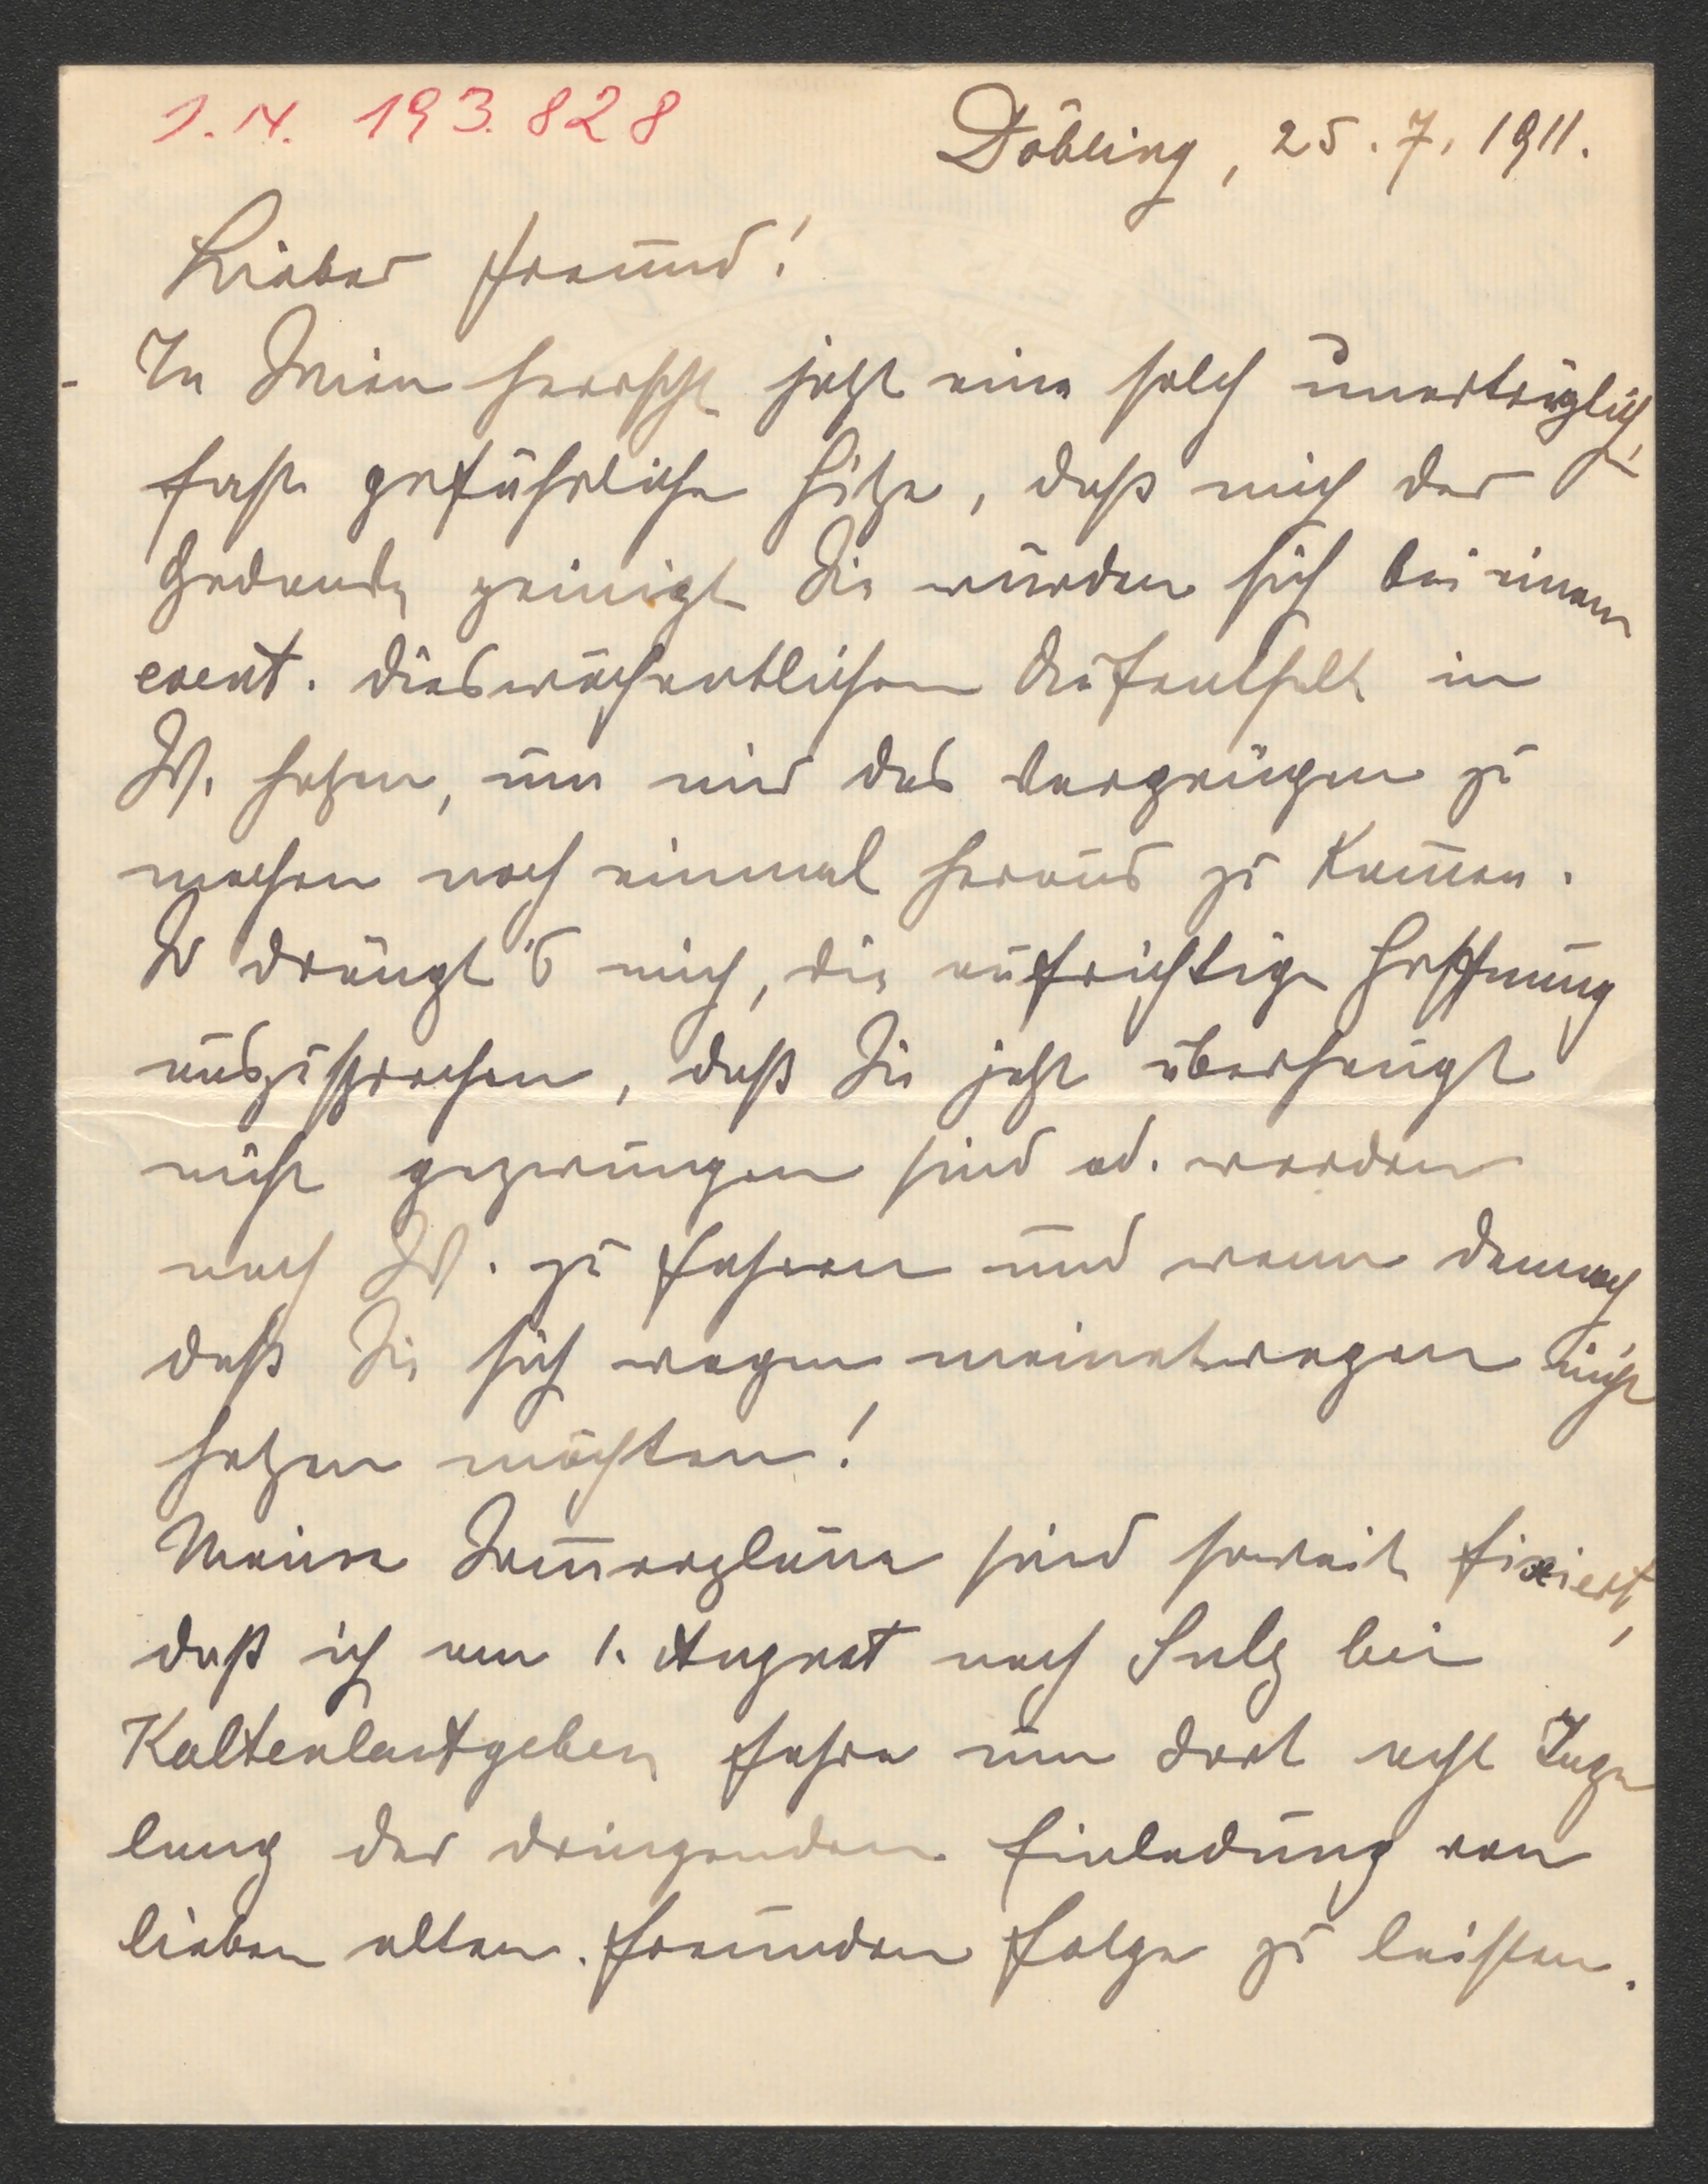 I. N. 193.828
Döbling, 25. 7. 1911.
Lieber Freund!
In Wien herrscht jetzt eine solch unerträglich,
fast gefährliche Hitze, daß mich der
Gedanke peinigt Sie würden sich bei einem
event. dieswöchentlichen Aufenthalt in
W. hetzen, um mir das Vergnügen zu
machen noch einmal heraus zu kom̅en.
So drängt's mich, die aufrichtige Hoffnung
auszusprechen, daß Sie jetzt überhaupt
nicht gezwungen sind od. werden
nach W. zu fahren und wenn dennoch
daß Sie sich wegen meinetwegen nicht
hetzen möchten!
Meine Som̅erpläne sind soweit fixiert,
daß ich am 1. August nach Sulz bei
Kaltenleutgeben fahre um dort acht Tage
lang der dringenden Einladung von
lieben alten Freunden Folge zu leisten.